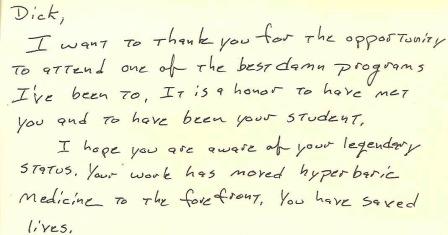 Dick,
I want to thank you for the opportunity
to attend one of the best damn programs
I've been to. It is a honor to have met
you and to have been your student.
I hope you are aware of your legendary
status. Your work has moved hyperbaric
medicine to the forefront. You have saved
lives.